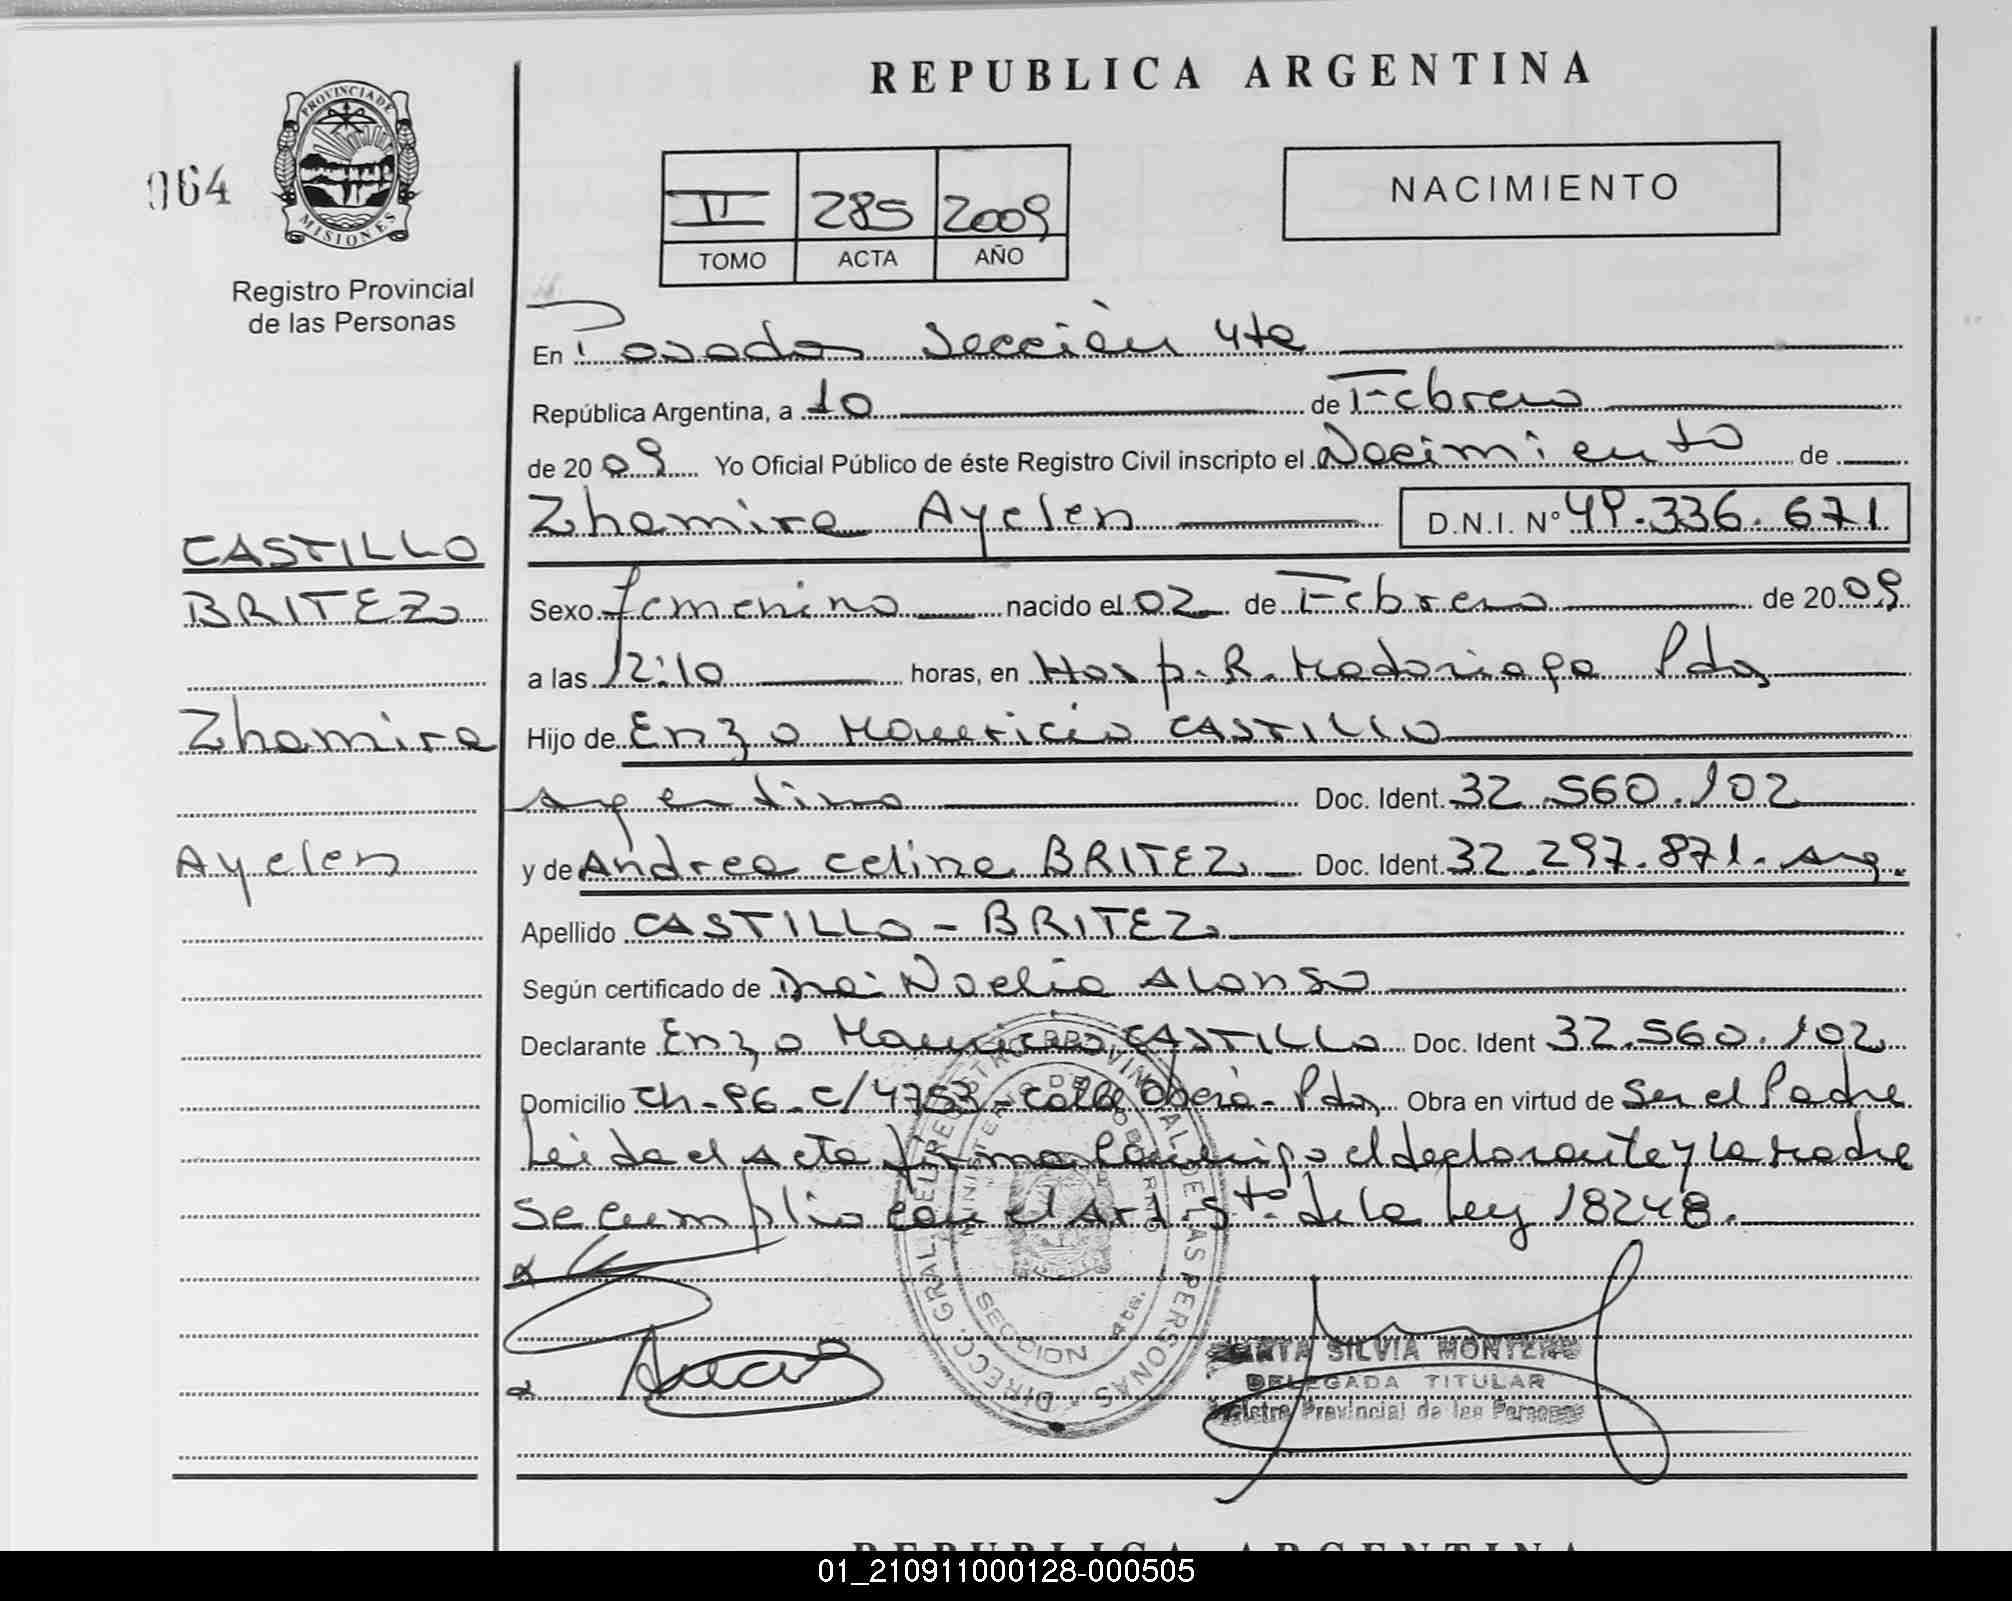 REPUBLICA ARGENTINA
PROVINCIA DE
MISIONES
064
Registro Provincial
de las Personas
II 285 2009
TOMO ACTA AÑO
NACIMIENTO
En Posadas Sección 4ta
República Argentina, a 10 de Febrero
de 2009 Yo Oficial Público de éste Registro Civil inscripto el Nacimiento de
Zhamira Ayelen D.N.I. Nº 49.336.671
CASTILLO
BRITEZ
Zhamira
Ayelen
Sexo femenino nacido el 02 de Febrero de 2009
a las 12:10 horas, en Hosp. R. Madariaga Pdas
Hijo de Enzo Mauricio CASTILLO
argentino Doc. Ident. 32.560.102
y de Andrea Celina BRITEZ Doc. Ident. 32.297.871. Arg.
Apellido CASTILLO - BRITEZ
Según certificado de Dra: Noelia Alonso
Declarante Enzo Mauricio CASTILLO Doc. Ident 32.560.102
Domicilio Ch-96-C/4753-Calle Oberá-Pdas Obra en virtud de Ser el Padre
Leida el Acta firma conmigo el declarante y la Madre
Se cumplio con el Art. 5to. de la Ley 18248.
DIRECC. GRAL DEL REGISTRO PROVINCIAL DE LAS PERSONAS
MINISTERIO DE GOBIERNO
SECCION 4ta.
MARTA SILVIA MONTERO
DELEGADA TITULAR
Registro Provincial de las Personas
REPUBLICA ARGENTINA
01_210911000128-000505